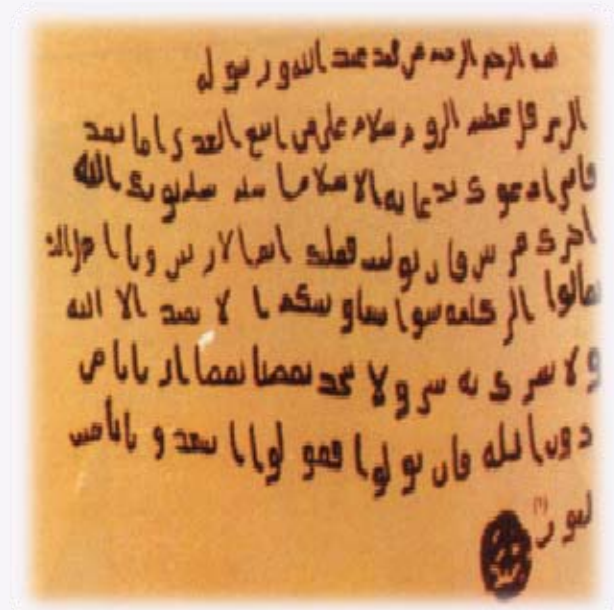 الله الرحمن الرحيم من محمد عبد الله ورسوله
الى هرقل عظيم الروم سلام على من اتبع الهدى اما بعد
فاني ادعوك بدعاية الاسلام اسلم تسلم يوتك الله
اجرك مرتين فان توليت فعليك اثم الاريسين ويا اهل
تعالوا الى كلمة سوا بيننا وبينكم الا نعبد الا الله
ولا نشرك به شي ولا يتخذ بعضنا بعضا اربابا من
دون الله فان تولوا فقولوا اشهدوا بانا مس
لمون (١)